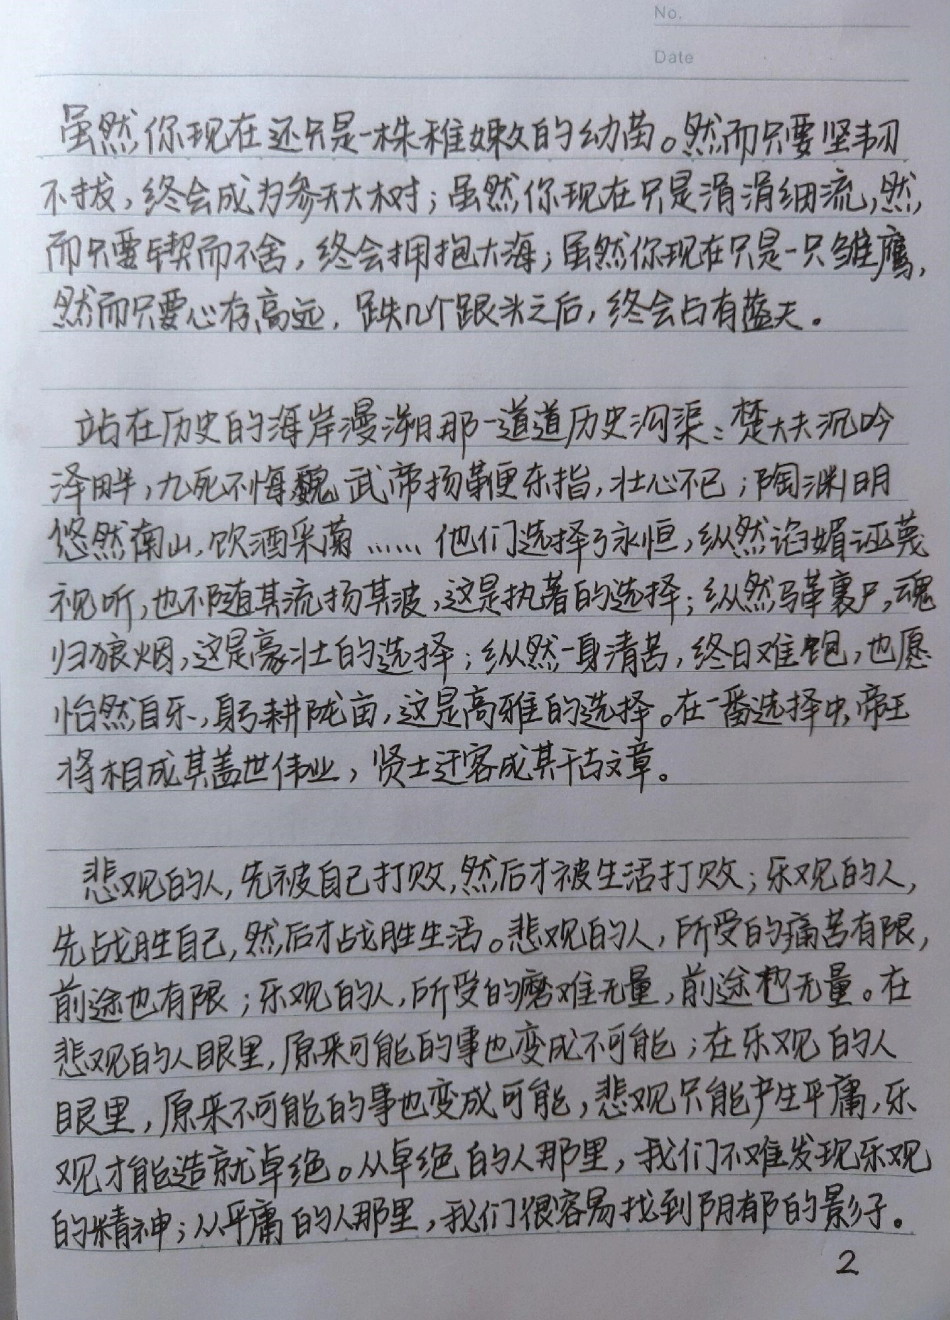 No.
Date
虽然你现在还只是一株稚嫩的幼苗。然而只要坚韧
不拔，终会成为参天大树；虽然你现在只是涓涓细流，然
而只要锲而不舍，终会拥抱大海；虽然你现在只是一只雏鹰，
然而只要心存高远，跌几个跟头之后，终会占有蓝天。
站在历史的海岸漫溯那一道道历史沟渠：楚大夫沉吟
泽畔，九死不悔魏武帝扬鞭东指，壮心不已；陶渊明
悠然南山，饮酒采菊……他们选择了永恒，纵然谄媚诬蔑
视听，也不随其流扬其波，这是执著的选择；纵然马革裹尸，魂
归狼烟，这是豪壮的选择；纵然一身清苦，终日难饱，也愿
怡然自乐，躬耕陇亩，这是高雅的选择。在一番选择中，帝王
将相成其盖世伟业，贤士迁客成其千古文章。
悲观的人，先被自己打败，然后才被生活打败；乐观的人，
先战胜自己，然后才战胜生活。悲观的人，所受的痛苦有限，
前途也有限；乐观的人，所受的磨难无量，前途也无量。在
悲观的人眼里，原来可能的事也变成不可能；在乐观的人
眼里，原来不可能的事也变成可能，悲观只能产生平庸，乐
观才能造就卓绝。从卓绝的人那里，我们不难发现乐观
的精神；从平庸的人那里，我们很容易找到阴郁的影子。
2